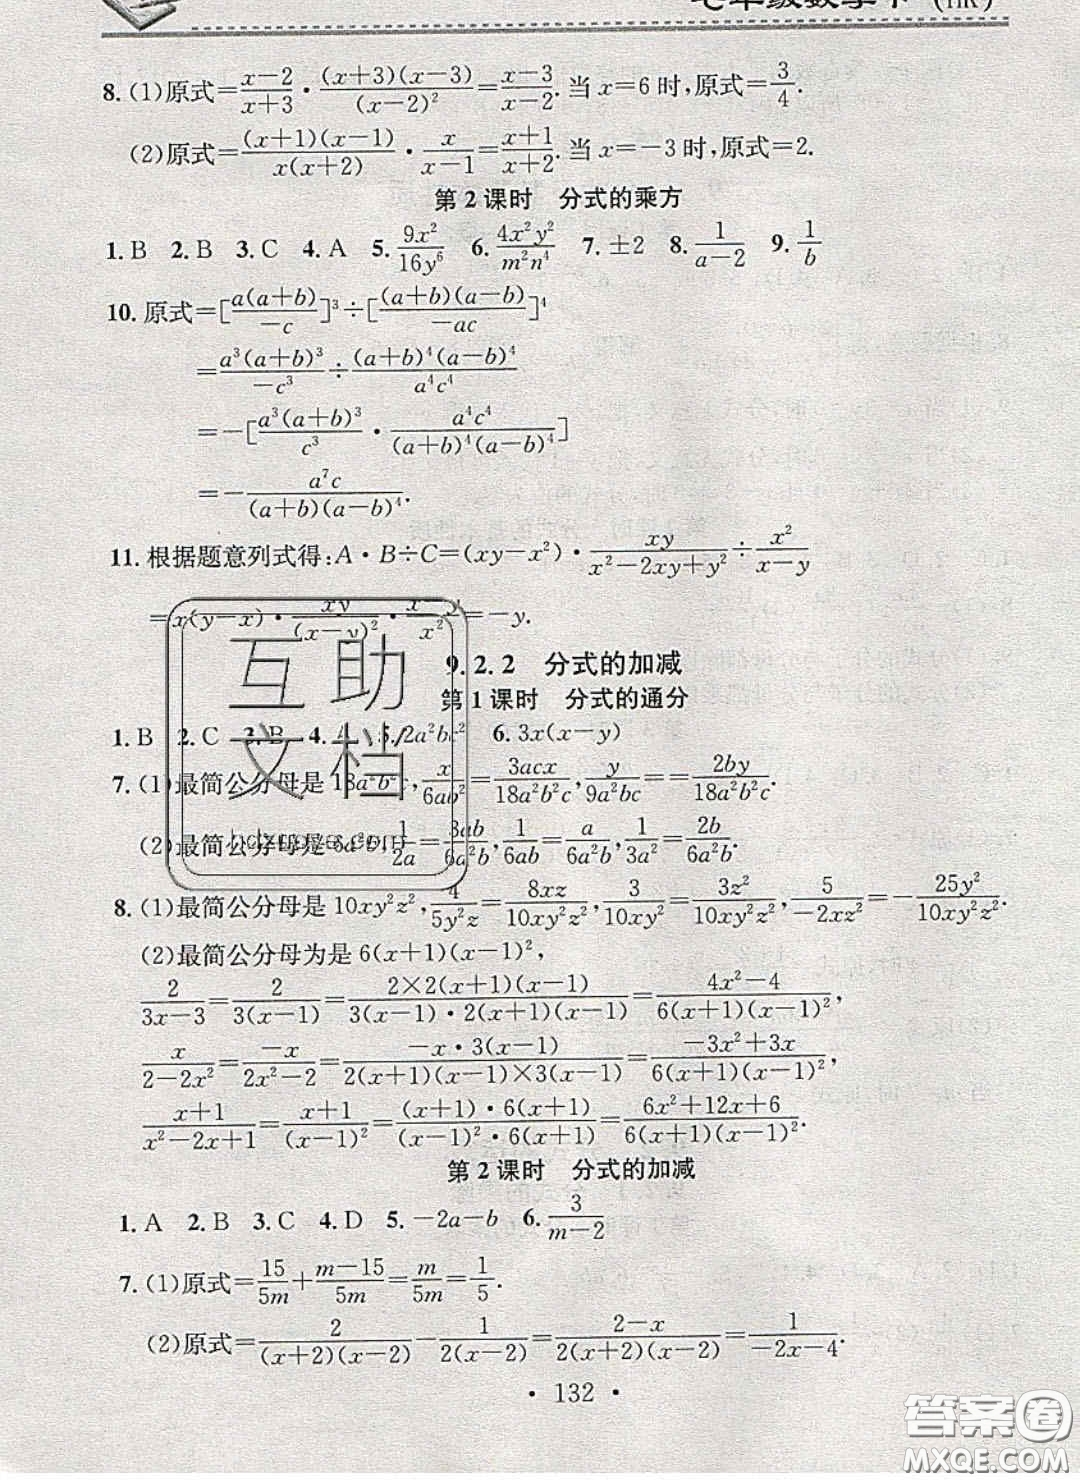 七年级数学下(HK)
8.(1)原式=\frac{x-2}{x+3}·\frac{(x+3)(x-3)}{(x-2)^2}=\frac{x-3}{x-2}.当x=6时,原式=\frac{3}{4}.
(2)原式=\frac{(x+1)(x-1)}{x(x+2)}·\frac{x}{x-1}=\frac{x+1}{x+2}.当x=-3时,原式=2.
第2课时 分式的乘方
1.B 2.B 3.C 4.A 5.\frac{9x^2}{16y^6} 6.\frac{4x^2y^2}{m^2n^4} 7.±2 8.\frac{1}{a-2} 9.\frac{1}{b}
10.原式=[\frac{a(a+b)}{-c}]^3÷[\frac{(a+b)(a-b)}{-ac}]^4
=\frac{a^3(a+b)^3}{-c^3}÷\frac{(a+b)^4(a-b)^4}{a^4c^4}
=-[\frac{a^3(a+b)^3}{c^3}·\frac{a^4c^4}{(a+b)^4(a-b)^4}]
=-\frac{a^7c}{(a+b)(a-b)^4}.
11.根据题意列式得:A·B÷C=(xy-x^2)·\frac{xy}{x^2-2xy+y^2}÷\frac{x^2}{x-y}
=x(y-x)·\frac{xy}{(x-y)^2}·\frac{x-y}{x^2}=-y.
9.2.2 分式的加减
第1课时 分式的通分
1.B 2.C 3.B 4.A 5.12a^2bc^2 6.3x(x-y)
7.(1)最简公分母是18a^2b^2c,\frac{x}{6ab^2}=\frac{3acx}{18a^2b^2c},\frac{y}{9a^2bc}==\frac{2by}{18a^2b^2c}.
(2)最简公分母是6a^2b,\frac{1}{2a}=\frac{3ab}{6a^2b},\frac{1}{6ab}=\frac{a}{6a^2b},\frac{1}{3a^2}=\frac{2b}{6a^2b}.
8.(1)最简公分母是10xy^2z^2,\frac{4}{5y^2z}=\frac{8xz}{10xy^2z^2},\frac{3}{10xy^2}=\frac{3z^2}{10xy^2z^2},\frac{5}{-2xz^2}=-\frac{25y^2}{10xy^2z^2}.
(2)最简公分母为是6(x+1)(x-1)^2,
\frac{2}{3x-3}=\frac{2}{3(x-1)}=\frac{2×2(x+1)(x-1)}{3(x-1)·2(x+1)(x-1)}=\frac{4x^2-4}{6(x+1)(x-1)^2},
\frac{x}{2-2x^2}=\frac{-x}{2x^2-2}=\frac{-x·3(x-1)}{2(x+1)(x-1)×3(x-1)}=\frac{-3x^2+3x}{6(x+1)(x-1)^2},
\frac{x+1}{x^2-2x+1}=\frac{x+1}{(x-1)^2}=\frac{(x+1)·6(x+1)}{(x-1)^2·6(x+1)}=\frac{6x^2+12x+6}{6(x+1)(x-1)^2}.
第2课时 分式的加减
1.A 2.B 3.C 4.D 5.-2a-b 6.\frac{3}{m-2}
7.(1)原式=\frac{15}{5m}+\frac{m-15}{5m}=\frac{m}{5m}=\frac{1}{5}.
(2)原式=\frac{2}{(x+2)(x-2)}-\frac{1}{2(x-2)}=\frac{2-x}{2(x+2)(x-2)}=\frac{1}{-2x-4}.
·132·
互助
文档
答案圈
MXQE.COM